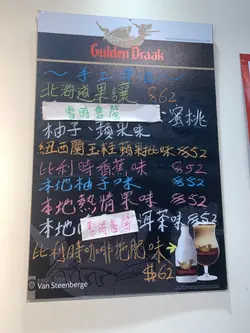 Gulden Draak
~ 手工果酒 ~
北海道果讓 $62
暫時售罄 蜜桃
柚子、蘋果味
紐西蘭玉桂蘋果批味 $52
比利時香蕉味 $52
本地柚子味 $52
本地熱情果味 $52
本地 暫時售罄 洱茶味 $52
比利時咖啡拖肥味
$62
Van Steenberge